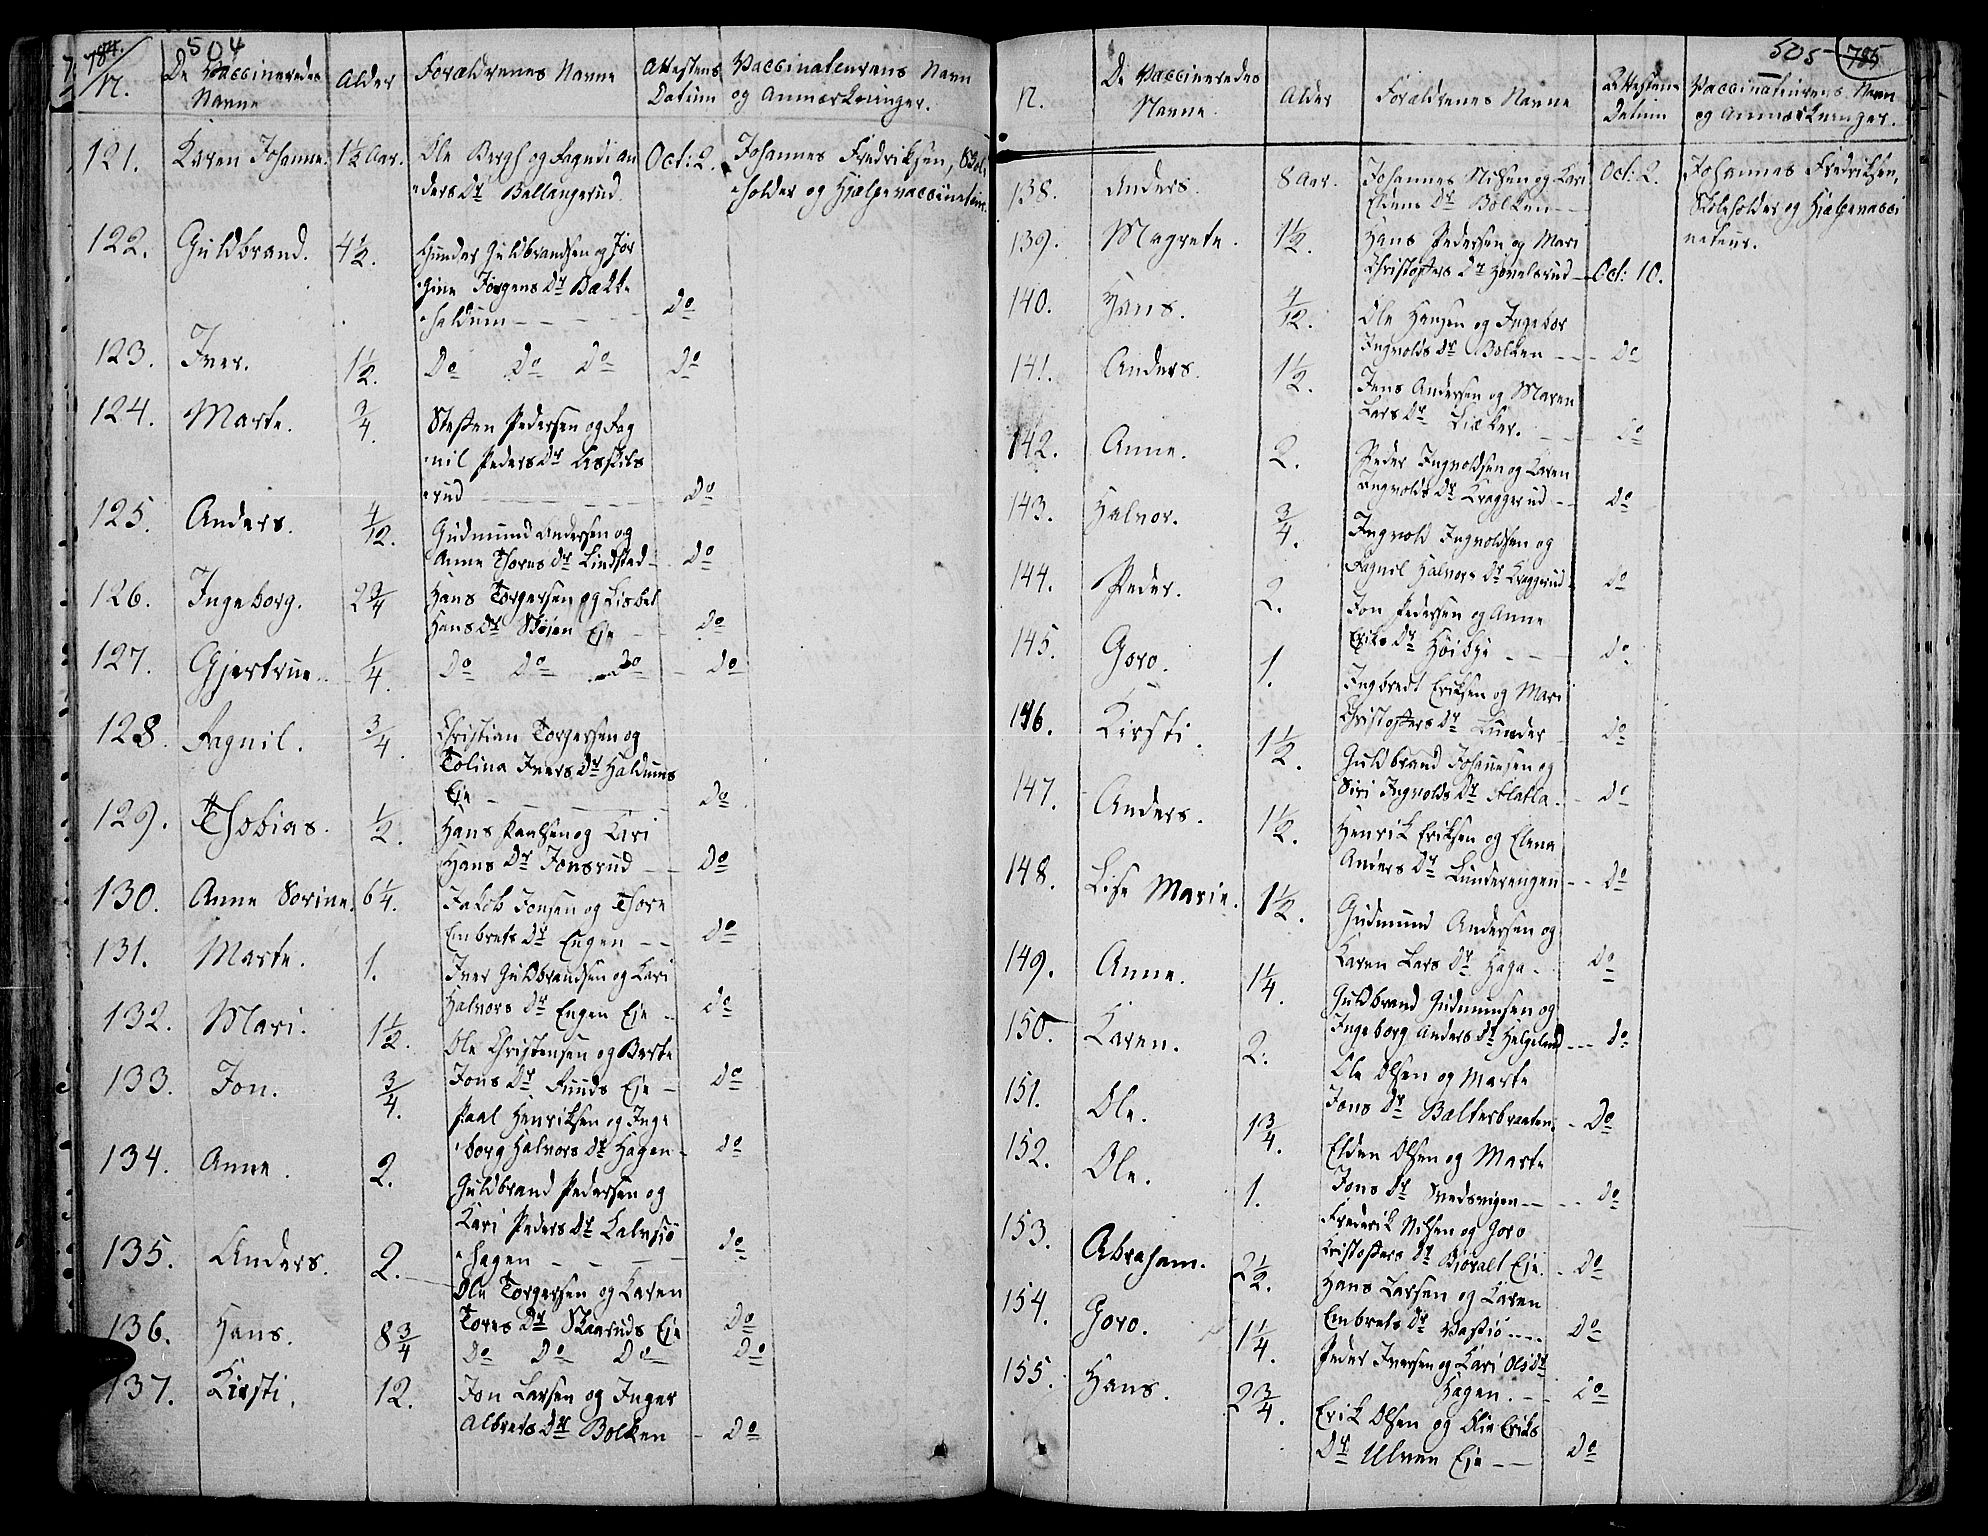 784. 504
N. De Vaccineredes Navne Alder Forældrenes Navne Attestens Datum Vaccinateurens Navn og Anmærkninger.
121. Karen Johanne. 1½ Aar. Ole Bergh og Fagnedi An
ders Dr Ballangerud. Oct: 2. Johannes Fredriksen, Skole
holder og Hjælpevaccinateur.
122. Guldbrand. 4½. Gunder Guldbrandsen og Jør
gine Jørgens Dr Bække
haldum Do
123. Iver. 1½. Do Do Do Do
124. Marte. 3/4. Steffen Pedersen og Fag
nil Peders Dr Eskils
rud Do
125. Anders. 4/12. Gudmund Andersen og
Anne Thores Dr Lindstad Do
126. Ingeborg. 2 3/4 Hans Torgersen og Lisbet
Hans Dr Støien Eje Do
127. Gjertrue. 1/4. Do Do Do Do
128. Fagnil. 3/4. Christian Torgersen og
Tolina Ivers Dr Haldums
Eje Do
129. Thobias. 1/2. Hans Paalsen og Kari
Hans Dr Jonsrud Do
130. Anne Sorine. 6¼. Jakob Jonsen og Thore
Embrets Dr Engen Do
131. Marte. 1. Iver Guldbrandsen og Kari
Halvors Dr Engen Eje Do
132. Mari. 1½. Ole Christensen og Berte
Jons Dr Ruuds Eje Do
133. Jon. 3/4. Paal Henriksen og Inge
borg Halvors Dr Hagen Do
134. Anne. 2. Guldbrand Pedersen og
Kari Peders Dr Kalvsiø
hagen Do
135. Anders. 2. Ole Torgersen og Karen
Tores Dr Skaaruds Eje Do
136. Hans. 8 3/4 Do Do Do Do
137. Kirsti. 12. Jon Larsen og Inger
Albrets Dr Bolken Do
505 785
N. De Vaccineredes Navne. Alder Forældrenes Navne Attestens Datum Vaccinateurens Navn og Anmærkninger.
138. Anders. 8 Aar. Johannes Nilsen og Kari
Eldens Dr Bolken Oct: 2. Johannes Fredriksen,
Skoleholder og Hjælpevacci
nateur.
139. Magrete. 1½. Hans Pedersen og Mari
Christoffers Dr Hovelsrud Oct: 10.
140. Hans. 4/12. Ole Hansen og Ingebor
Ingvolds Dr Bolken Do
141. Anders. 1½. Jens Andersen og Maren
Lars Dr Liæker. Do
142. Anne. 2. Peder Ingvoldsen og Karen
Ingvolds Dr Kraggerud Do
143. Halvor. 3/4. Ingvold Ingvoldsen og
Fagnil Halvors Dr Kraggerud Do
144. Peder. 2. Jon Pedersen og Anne
Eriks Dr Høibye Do
145. Goro. 1. Ingbredt Eriksen og Mari
Christoffers Dr Lunder Do
146. Kirsti. 1½. Guldbrand Johannesen og
Siri Ingvolds Dr Flatla. Do
147. Anders. 1½. Henrik Eriksen og Elena
Anders Dr Lunderengen Do
148. Lise Marie. 1½. Gudmund Andersen og
Karen Lars Dr Haga Do
149. Anne. 1¼. Guldbrand Gudmunsen og
Ingeborg Anders Dr Helgeland Do
150. Karen. 2. Ole Olsen og Marte
Jons Dr Baltersbraaten. Do
151. Ole. 1 3/4. Elden Olsen og Marte
Jons Dr Svedsvigen Do
152. Ole. 1. Frederik Nilsen og Goro
Kristoffers Dr Bjoralt Eje. Do
153. Abraham. 2½. Hans Larsen og Karen
Embrets Dr Vassiø Do
154. Goro. 1¼. Peder Iversen og Kari Ols Dr
Hagen. Do
155. Hans. 2 3/4. Erik Olsen og Olia Eriks
Dr Ulven Eje Do